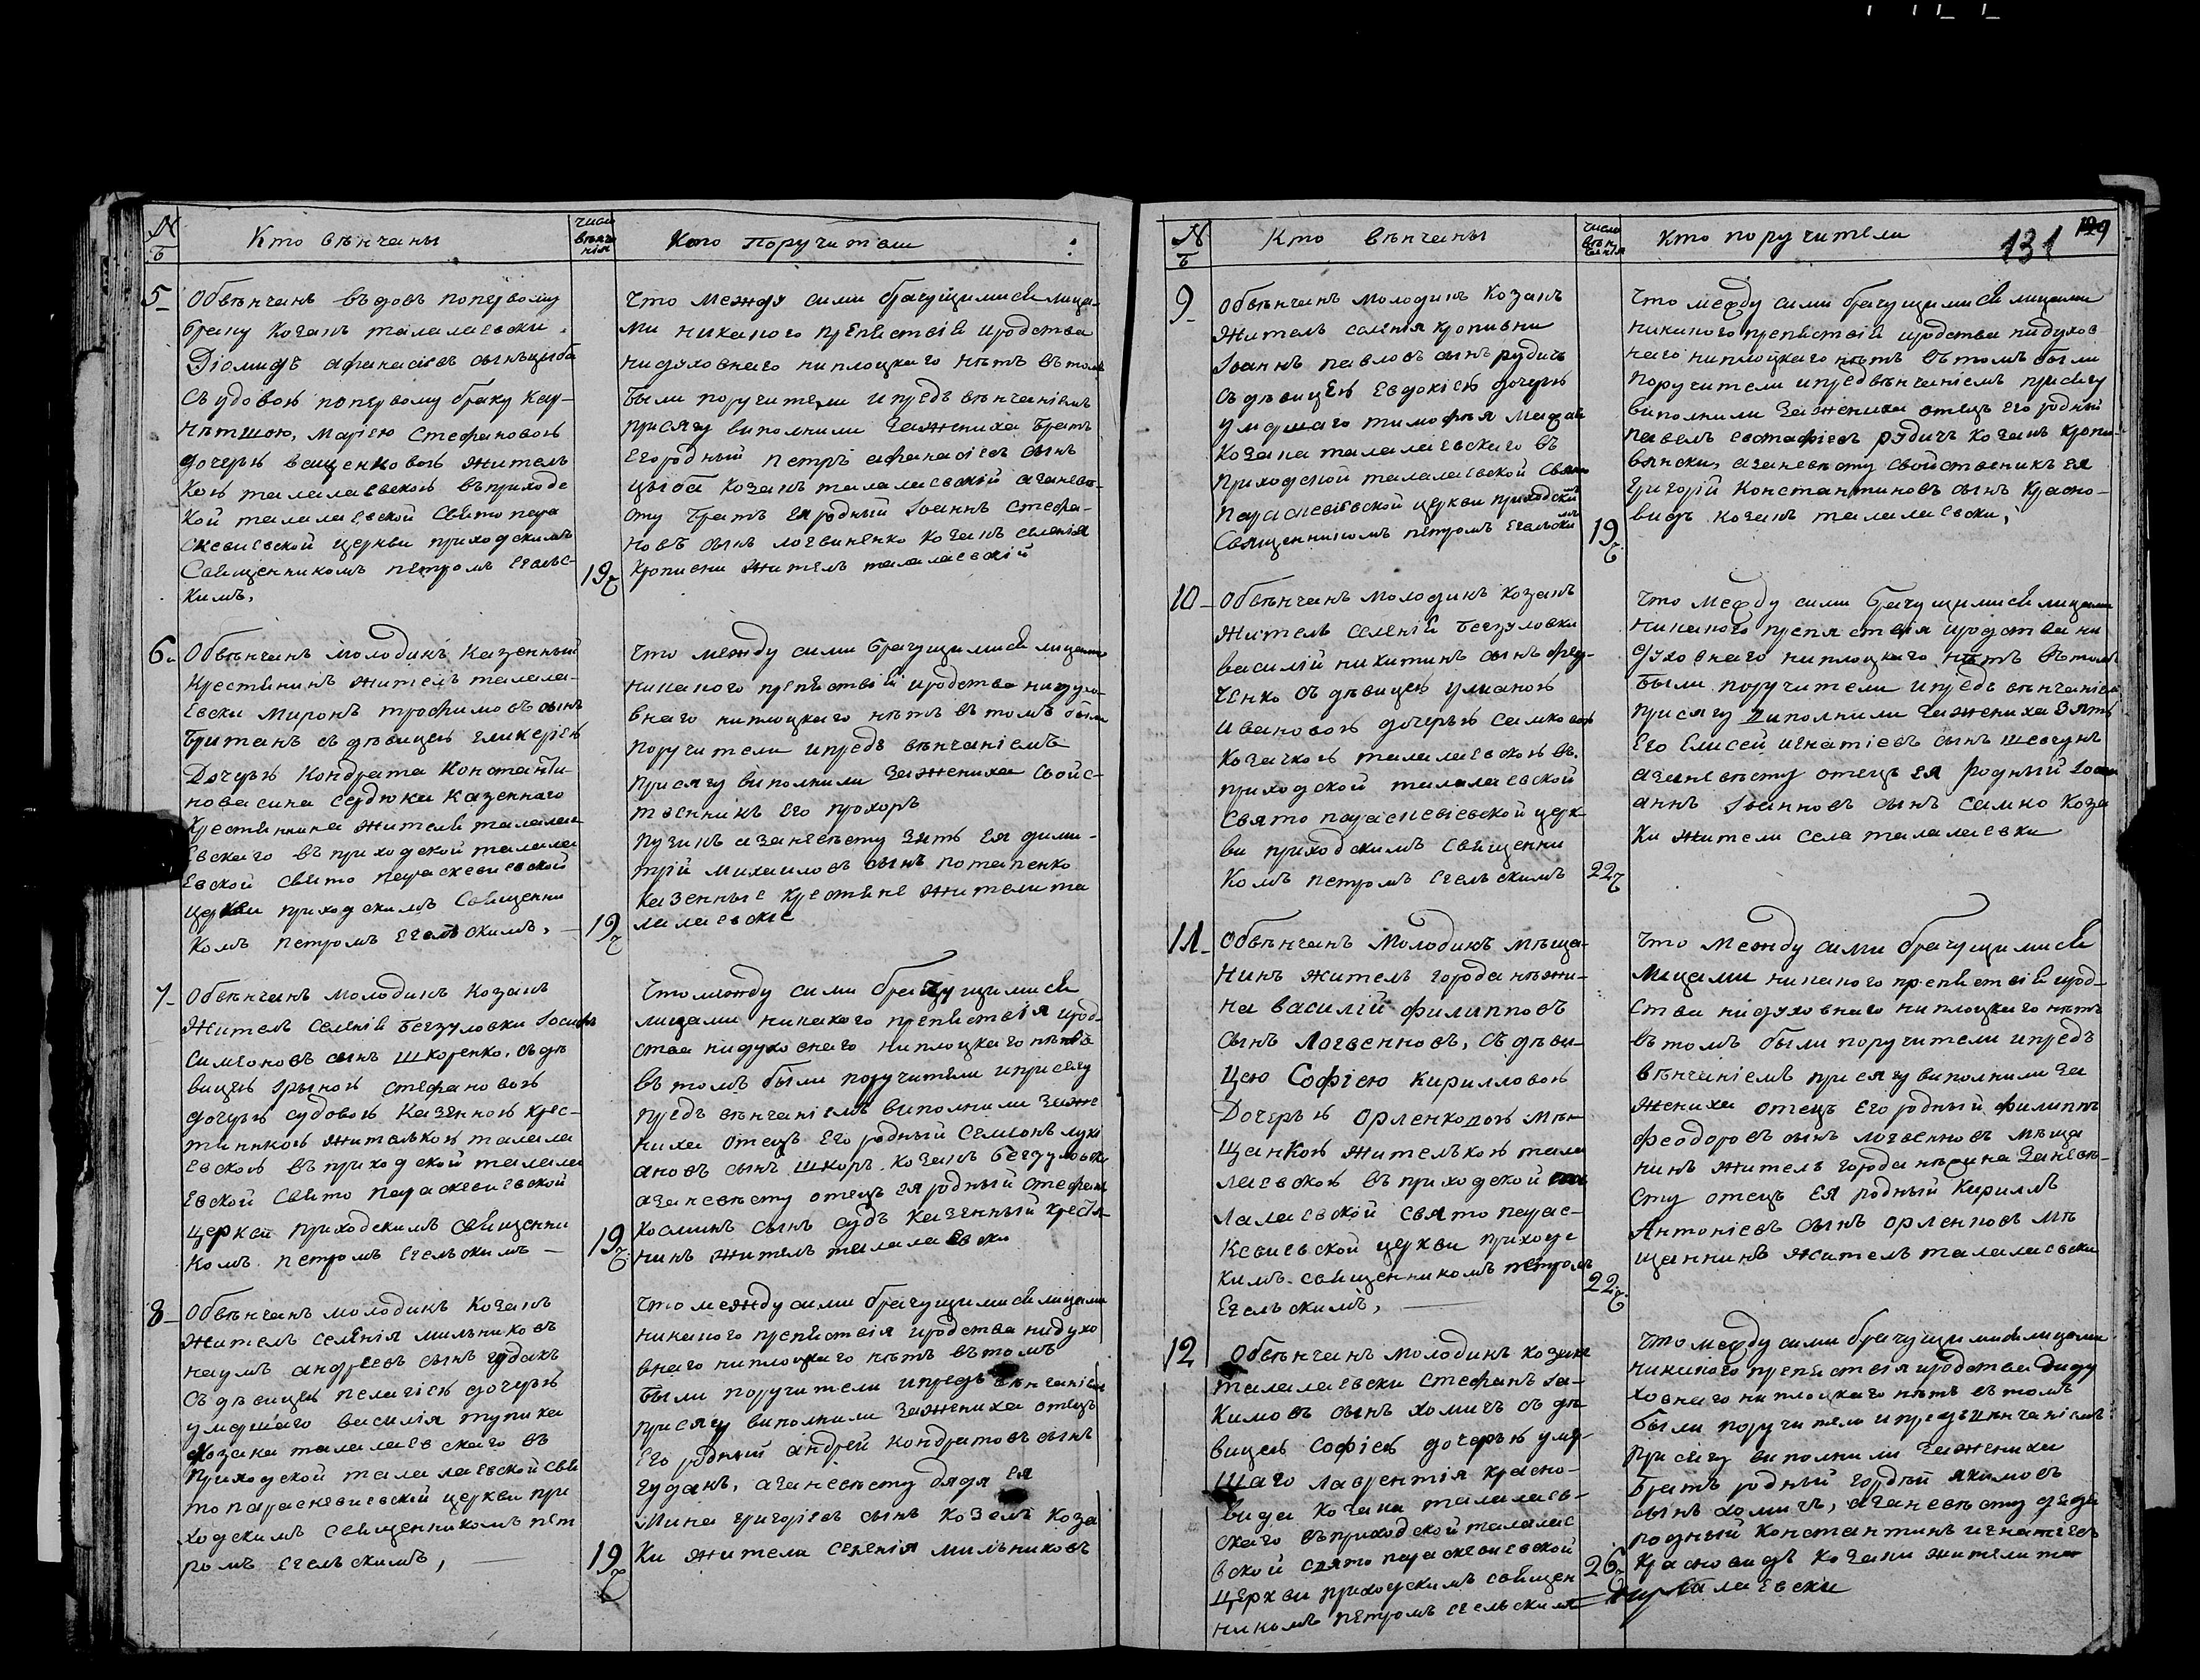 №
Кто вѣнчаны
число
вѣнча
нія
Кто поручители
5
Обвѣнчанъ вдовъ попервому
браку козакъ талалаевски
Діомидъ афанасіевъ сынъ цыба
съ удовою попервому браку кор-
нѣтшою, Маріею Стефановою
дочерью ващенковою жител
кою талалаевскою въ приходс
кой талалаевской свято пара
скевиевской церкви приходскимъ
священникомъ петромъ Егельс-
кимъ,
19
Что между сими брачущимися лица-
ми никакого препятствія и родства
ни духовнаго ни плоцкаго нѣтъ в томъ
были поручители и предъ вѣнчаніемъ
присягу виполнили за жениха братъ
его родный петръ афанасіевъ сынъ
цыба козакъ талалаевскій а за невѣ-
сту братъ ея родный Іоаннъ Стефа-
новъ сынъ логвиненко козакъ селенія
кропивни жителъ талалаевскій
6
Обвѣнчанъ молодикъ казенный
крестянинъ жителъ талала-
евски Миронъ трофимовъ сынъ
британъ съ дѣвицею гликеріею
Дочерью Кондрата Константи-
нова сина сердюка казеннаго
крестянина жителя талала
евскаго въ приходской талала
евской свято параскевиевской
церкви приходскимъ священни
комъ петромъ егельскимъ,
19
Что между сими брачущимися лицами
никакого препятствія и родства ни духо-
внаго ни плоцкаго нѣтъ в томъ были
поручители и предъ вѣнчаніемъ
присягу виполнили за жениха свойс-
твенникъ его прохоръ
пузикъ а за невѣсту зять ея дими-
трій михаиловъ сынъ потапенко
казенные крестяне жители та
лалаевскіе
7
Обвѣнчанъ молодикъ козакъ
жителъ селенія безуловки Іосифъ
симеоновъ сынъ шкоренко, съ дѣ
вицею Ириною стефановою
дочерью судовою казенною крес-
тянкою жителкою талала
евскою въ приходской талала
евской свято параскевиевской
церкви приходскимъ священни
комъ петромъ егельскимъ —
19
Что между сими брачущимися
лицами никакого препятствія и род-
ства ни духовнаго ни плоцкаго нѣтъ
въ томъ были поручители и присягу
предъ вѣнчаніемъ виполнили за же
ниха отецъ его родный Семіонъ луки
ановъ сынъ шкоръ козакъ безуловски
а за невѣсту отецъ ея родный стефанъ
косминъ сынъ судъ казенный кресть
нинъ жителъ талалаевски
8
Обвѣнчанъ молодикъ козакъ
жителъ селенія мильниковъ
наумъ андреевъ сынъ гудакъ
съ дѣвицею пелагіею дочерью
умершаго василія тупика
козака талалаевскаго въ
приходской талалаевской свя
то параскевиевскій церкви при
ходскимъ священникомъ пет
ромъ егельскимъ,
19
Что между сими брачущимися лицами
никакого препятствія и родства ни духо
внаго ни плоцкаго нѣтъ въ томъ
были поручители и предъ вѣнчаніемъ
присягу виполнили за жениха отецъ
его родный андрей кондратовъ сынъ
гудакъ, а за невѣсту дядя ея
Мина григоріевъ сынъ козелъ коза
ки жители селенія мильниковъ
№
Кто вѣнчаны
число
вѣн
чанія
Кто поручители
131
129
9
Обвѣнчанъ молодикъ козакъ
жителъ селенія кропивни
Іоаннъ павловъ сынъ рудичъ
съ дѣвицею Евдокіею дочерью
умершаго тимофея
козака талалаевскаго въ
приходской талалаевской свято
параскевіевской церкви приходским
священникомъ петромъ егельским
19
Что между сими брачущимися лицами
никакого препятствій и родства ни духов
наго ни плоцкаго нѣтъ въ томъ были
поручители и предъ вѣнчаніемъ присягу
виполнили за жениха отецъ его родный
павелъ евстафіевъ рудичъ козакъ кропи-
вянски, а за невѣсту свойственикъ ея
григорій константиновъ сынъ красно-
видъ козакъ талалаевски,
10
Обвѣнчанъ молодикъ козакъ
жителъ селенія безуловки
василій никитинъ сынъ
ченко съ дѣвицею улианою
ивановою дочерью самковою
козачкою талалаевскою въ
приходской талалаевской
свято параскевіевской церк
ви приходскимъ священни
комъ петромъ егельскимъ
22
Что между сими брачущимися лицами
никакого препятствія и родства ни
духовнаго ни плоцкаго нѣтъ въ томъ
были поручители и предъ вѣнчаніем
присягу виполнили за жениха зять
его Елисей игнатіевъ сынъ шевчукъ
а за невѣсту отецъ ея родный Іо
аннъ Іоанновъ сынъ самко коза
ки жители села талалаевки
11
Обвѣнчанъ Молодикъ мѣща-
нинъ жителъ города нѣжи-
на василій филипповъ
сынъ Логвеновъ, съ дѣви-
цею Софіею кирилловою
Дочерью орленковою мѣ-
щанкою жителькою тала
лаевскою въ приходской та
лалаевской свято парас-
кевиевской церкви приходс
кимъ священникомъ петромъ
егельскимъ,
22
Что между сими брачущимися
лицами никакого препятствія и род-
ства ни духовнаго ни плоцкаго нѣтъ
въ томъ были поручители и предъ
вѣнчаніемъ присягу виполнили за
жениха отецъ его родный филиппъ
феодоровъ сынъ логвеновъ мѣща
нинъ жителъ города нѣжина за невѣ-
сту отецъ ея родный кириллъ
Антоніевъ сынъ орленковъ мѣ
щанинъ жителъ талалаевски
12
Обвѣнчанъ молодикъ козакъ
талалаевски стефанъ іа-
кимовъ сынъ хомичъ съ дѣ
вицею Софіею дочерью умер-
шаго лаврентія красно-
вида козака талалаев-
скаго въ приходской талалае
вской свято параскевиевской
церкви приходскимъ священ
никомъ петромъ егельским
26
Что между сими брачущимися лицами
никакого препятствія и родства ни ду
ховнаго ни плоцкаго нѣтъ въ томъ
были поручители и предъ вѣнчаніемъ
присягу виполнили за жениха
братъ родный гордѣй якимовъ
сынъ хомичъ, а за невѣсту дядя
родный константинъ игнатіевъ
красновидъ козаки жители та
лалаевски